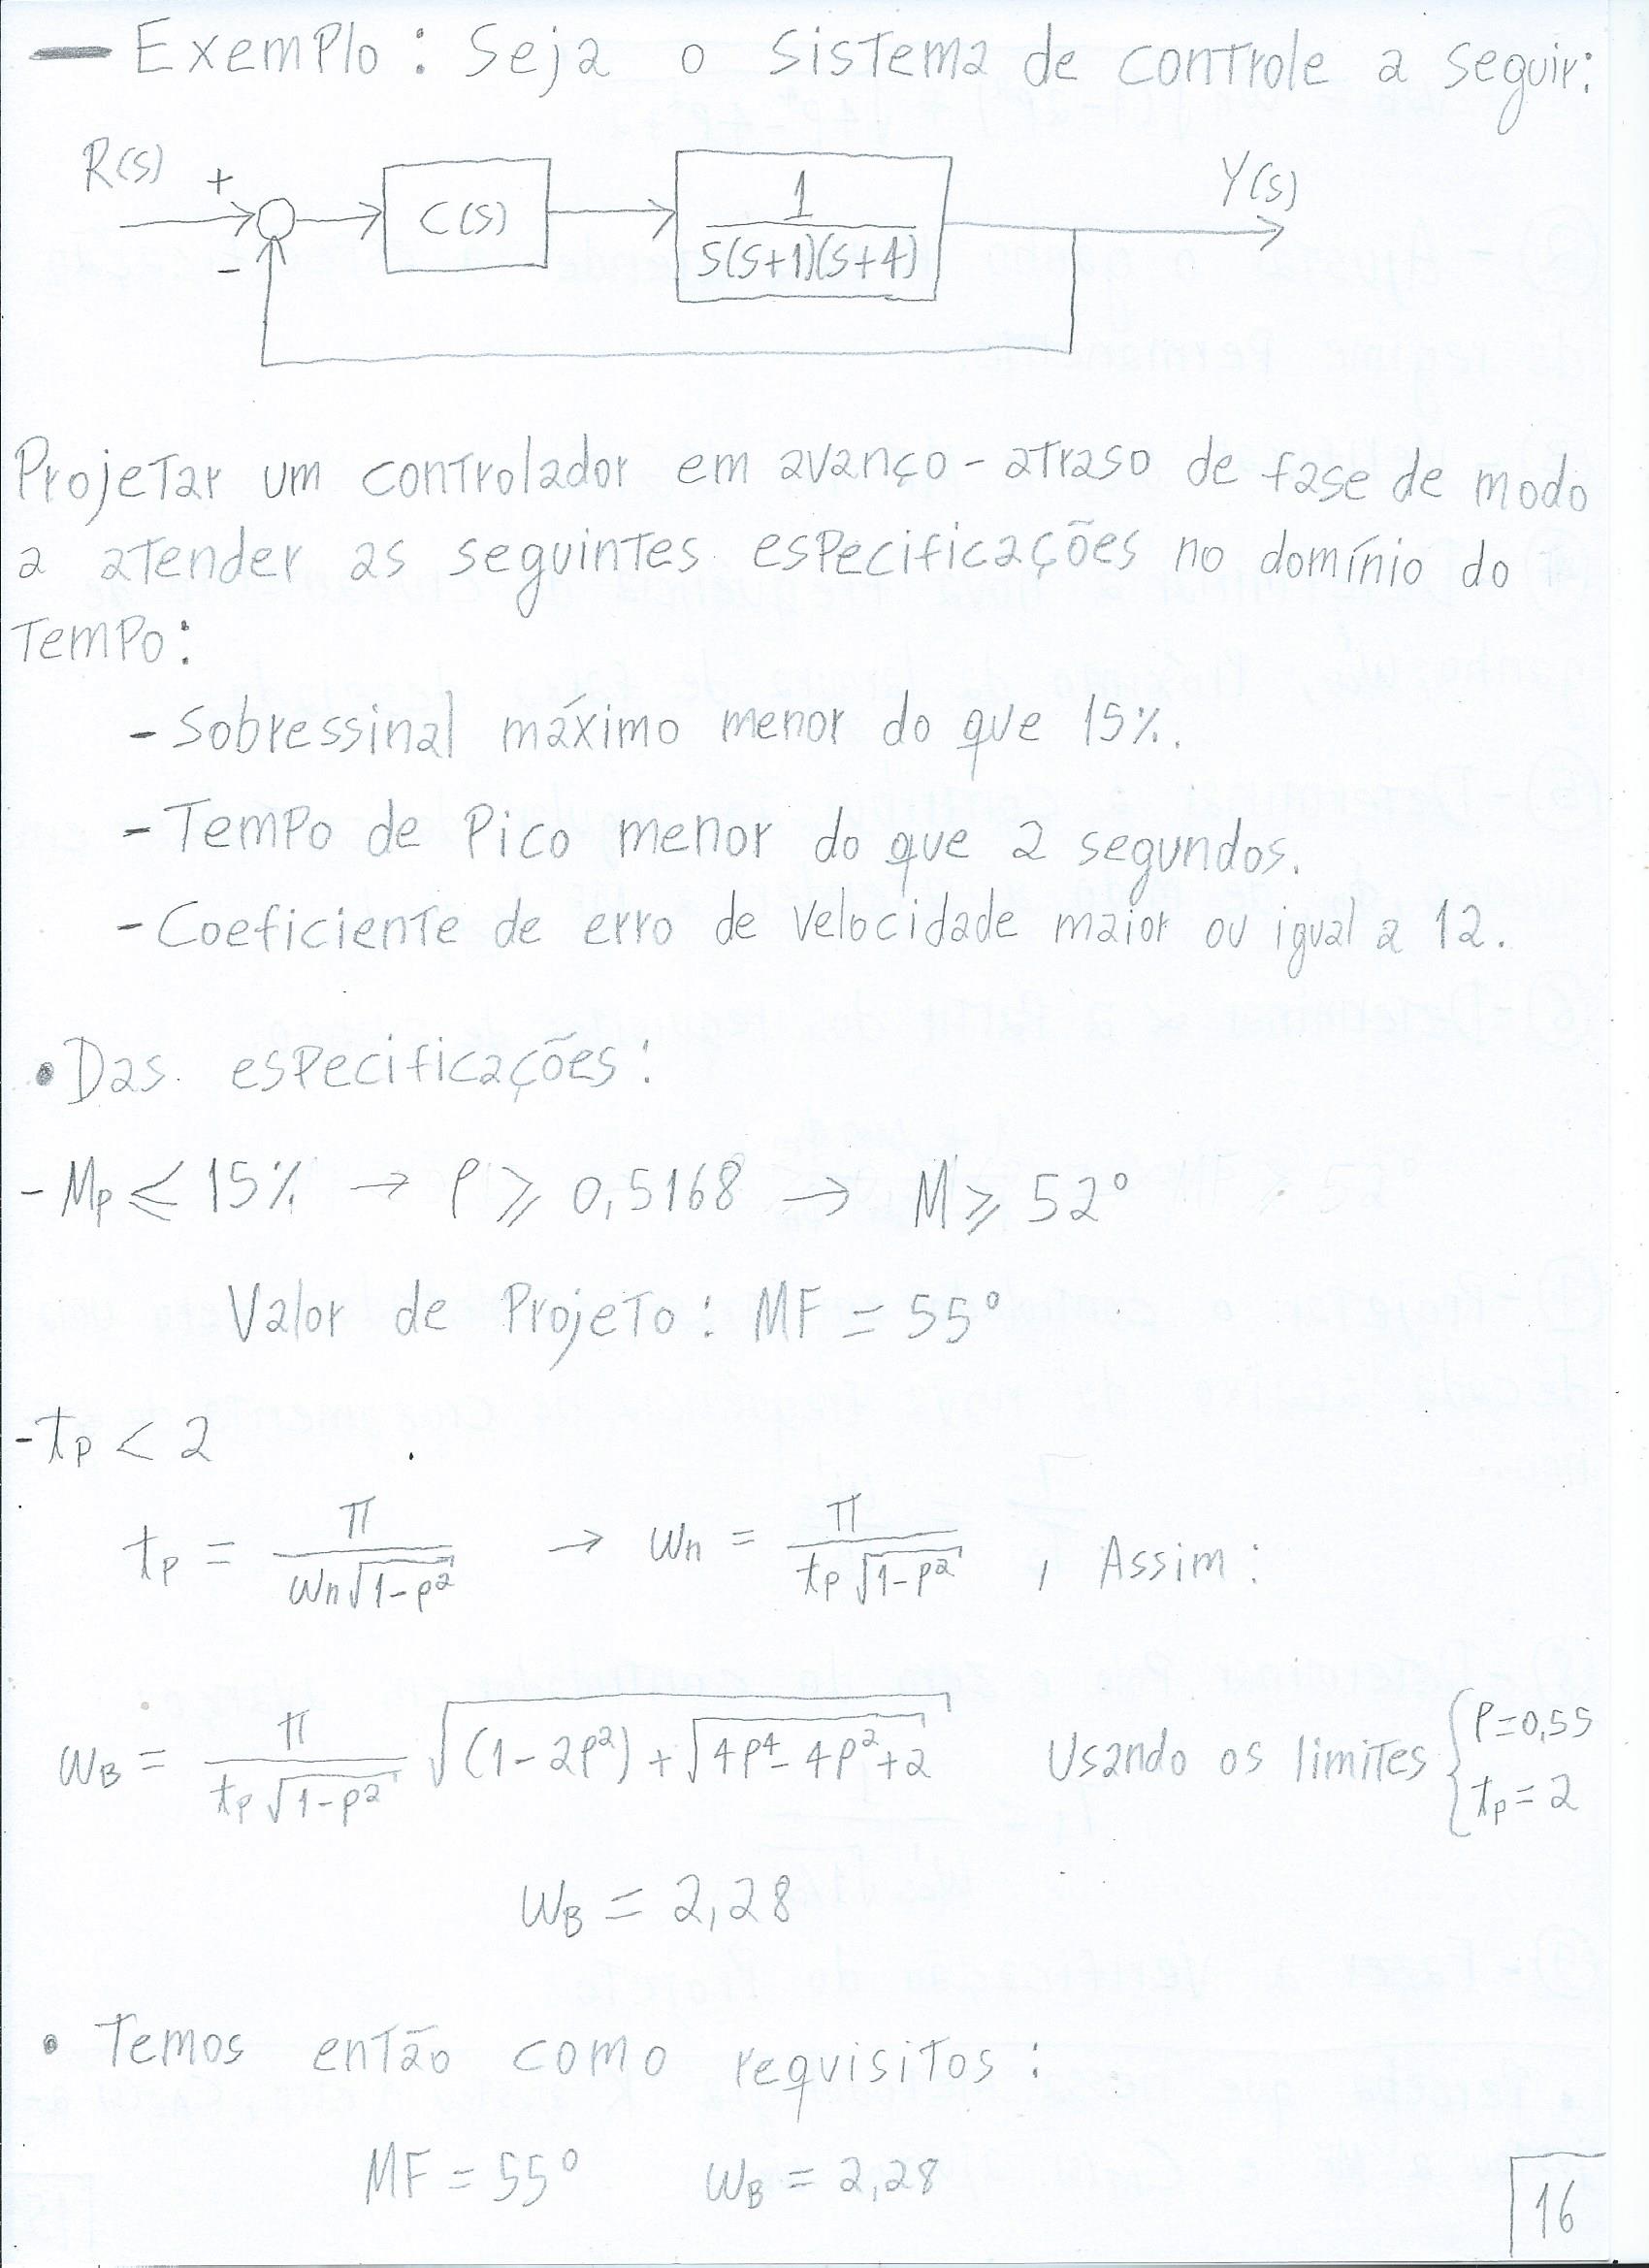 — Exemplo: Seja o sistema de controle a seguir:
R(s) + - C(s) 1/s(s+1)(s+4) Y(s)
Projetar um controlador em avanço-atraso de fase de modo
a atender as seguintes especificações no domínio do
tempo:
- Sobressinal máximo menor do que 15%.
- Tempo de pico menor do que 2 segundos.
- Coeficiente de erro de velocidade maior ou igual a 12.
• Das especificações:
- Mp ≤ 15% → ρ ≥ 0,5168 → M ≥ 52°
Valor de Projeto: MF = 55°
- tp < 2
tp = π/(ωn√(1-ρ²)) → ωn = π/(tp√(1-ρ²)), Assim:
ωB = π/(tp√(1-ρ²)) √((1-2ρ²)+√(4ρ⁴-4ρ²+2)) Usando os limites { ρ=0,55 tp=2
ωB = 2,28
• Temos então como requisitos:
MF = 55° ωB = 2,28
16